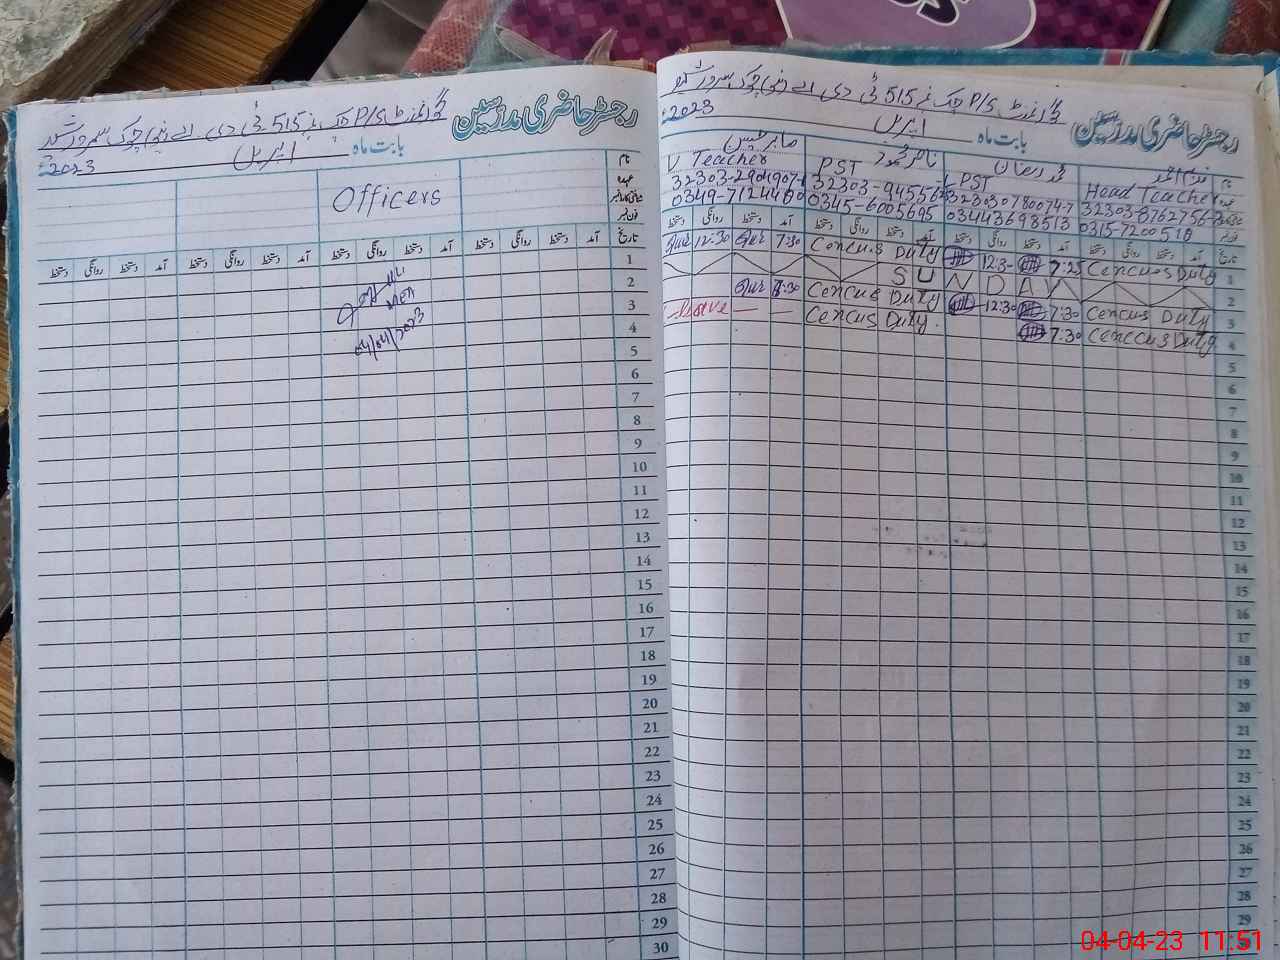 رجسٹر حاضری مدرسین
گورنمنٹ P/S چک نمبر 515 ٹی ڈی اے چوک سرور شہید
بابت ماہ اپریل 2023
نام
عہدہ
شناختی کارڈ نمبر
فون نمبر
Officers
تاریخ آمد دستخط روانگی دستخط آمد دستخط روانگی دستخط آمد دستخط روانگی دستخط آمد دستخط روانگی دستخط
1
2
3
4
04/04/2023
5
6
7
8
9
10
11
12
13
14
15
16
17
18
19
20
21
22
23
24
25
26
27
28
29
30
رجسٹر حاضری مدرسین
گورنمنٹ P/S چک نمبر 515 ٹی ڈی اے چوک سرور شہید
بابت ماہ اپریل 2023
نام ناصر محمود
Teacher PST PST Head Teacher
0349-7124400 0345-6005695 03443698513 0315-7200510
تاریخ آمد دستخط روانگی دستخط آمد دستخط روانگی دستخط آمد دستخط روانگی دستخط آمد دستخط روانگی دستخط
12:30 7:30 Cencus Duty 12:30 7:25 Cencues Duty 1
SUNDAY 2
7:30 Cencus Duty 12:30 7:30 Cencus Duty 3
Leave Cencus Duty 7:30 Cenccus Duty 4
5
6
7
8
9
10
11
12
13
14
15
16
17
18
19
20
21
22
23
24
25
26
27
28
29
04-04-23 11:51